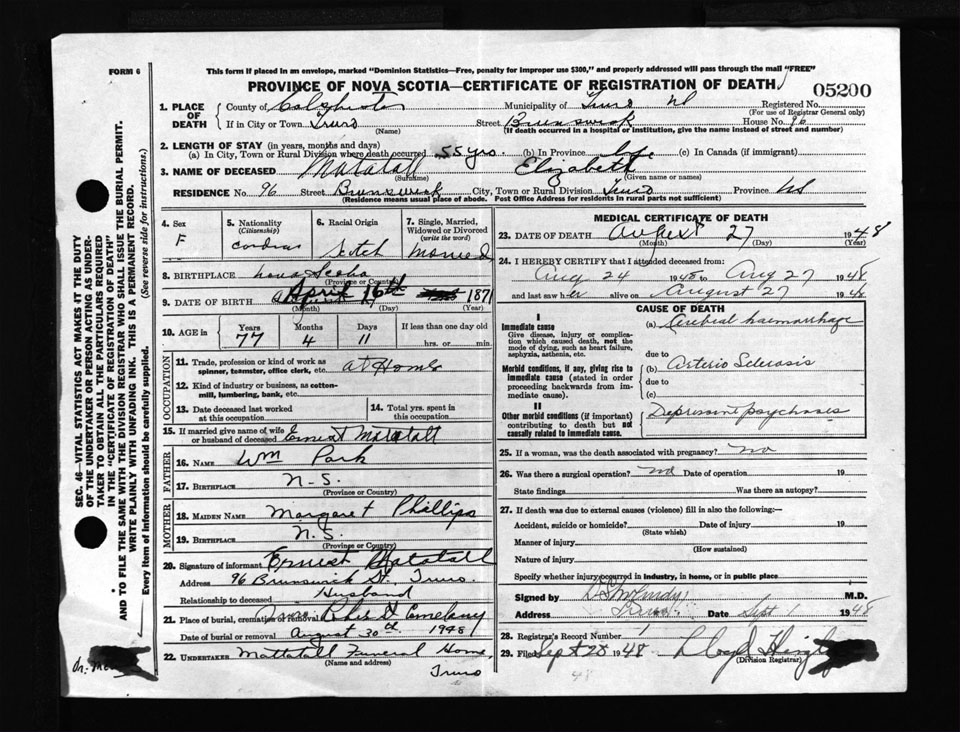 FORM 6
This form if placed in an envelope, marked "Dominion Statistics—Free, penalty for improper use $300," and properly addressed will pass through the mail "FREE"
PROVINCE OF NOVA SCOTIA—CERTIFICATE OF REGISTRATION OF DEATH
05200
1. PLACE OF DEATH
County of Colchester Municipality of Truro Registered No.
(For use of Registrar General only)
If in City or Town Truro Street Brunswick House No. 96
(Name) (If death occurred in a hospital or institution, give the name instead of street and number)
2. LENGTH OF STAY (in years, months and days)
(a) In City, Town or Rural Division where death occurred 55 yrs. (b) In Province life (c) In Canada (if immigrant)
3. NAME OF DECEASED Matatall Elizabeth
(Surname) (Given name or names)
RESIDENCE No. 96 Street Brunswick City, Town or Rural Division Truro Province NS
(Residence means usual place of abode. Post Office Address for residents in rural parts not sufficient)
4. Sex F
5. Nationality (Citizenship)
6. Racial Origin Scotch
7. Single, Married, Widowed or Divorced (write the word) Married
8. BIRTHPLACE Nova Scotia
(Province or Country)
9. DATE OF BIRTH April 16th 1871
(Month) (Day) (Year)
10. AGE in Years 77 Months 4 Days 11 If less than one day old hrs. or min.
OCCUPATION
11. Trade, profession or kind of work as spinner, teamster, office clerk, etc. at Home
12. Kind of industry or business, as cotton-mill, lumbering, bank, etc.
13. Date deceased last worked at this occupation
14. Total yrs. spent in this occupation
15. If married give name of wife or husband of deceased Ernest Matatall
FATHER
16. NAME Wm Park
17. BIRTHPLACE N.S.
(Province or Country)
MOTHER
18. MAIDEN NAME Margaret Phillips
19. BIRTHPLACE N.S.
(Province or Country)
20. Signature of informant Ernest Matatall
Address 96 Brunswick St., Truro
Relationship to deceased Husband
21. Place of burial, cremation or removal Cemetery
Date of burial or removal August 30th 1948
22. UNDERTAKER Mattatall Funeral Home,
(Name and address) Truro
MEDICAL CERTIFICATE OF DEATH
23. DATE OF DEATH August 27 1948
(Month) (Day) (Year)
24. I HEREBY CERTIFY that I attended deceased from:
Aug 24 1948 to Aug 27 1948
and last saw her alive on August 27 1948
CAUSE OF DEATH
I
Immediate cause
Give disease, injury or complication which caused death, not the mode of dying, such as heart failure, asphyxia, asthenia, etc.
(a) Cerebral haemorrhage
due to
Morbid conditions, if any, giving rise to immediate cause (stated in order proceeding backwards from immediate cause).
(b) Arterio Sclerosis
due to
(c)
II
Other morbid conditions (if important) contributing to death but not causally related to immediate cause.
psychosis
25. If a woman, was the death associated with pregnancy? no
26. Was there a surgical operation? no Date of operation 19
State findings Was there an autopsy?
27. If death was due to external causes (violence) fill in also the following:—
Accident, suicide or homicide? Date of injury 19
(State which)
Manner of injury
(How sustained)
Nature of injury
Specify whether injury occurred in industry, in home, or in public place
Signed by M.D.
Address Truro Date Sept 1 1948
28. Registrar's Record Number
29. Filed Sept 1948 Lloyd
(Division Registrar)
48
SEC. 46—VITAL STATISTICS ACT MAKES IT THE DUTY
OF THE UNDERTAKER OR PERSON ACTING AS UNDER-
TAKER TO OBTAIN ALL THE PARTICULARS REQUIRED
IN THE "CERTIFICATE OF REGISTRATION OF DEATH"
AND TO FILE THE SAME WITH THE DIVISION REGISTRAR WHO SHALL ISSUE THE BURIAL PERMIT.
WRITE PLAINLY WITH UNFADING INK. THIS IS A PERMANENT RECORD.
Every item of information should be carefully supplied. (See reverse side for instructions.)